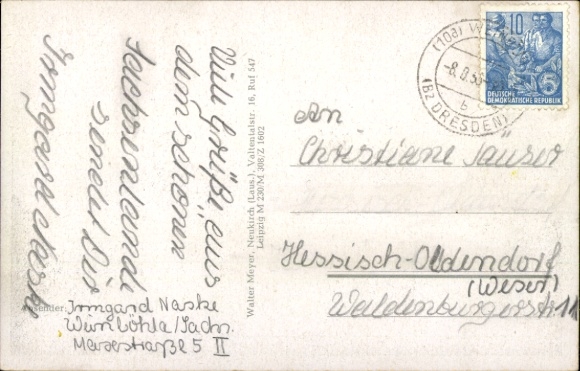 Viele Grüße aus
dem schönen
Sachsenlande
sendet Dir
Irmgard Naske
Absender: Irmgard Naske
Weinböhla/Sachs.
Meisestraße 5 II
Walter Meyer, Neukirch (Laus.), Valtentalstr. 16, Ruf 547
Leipzig M 230/M 308/Z 1602
(10a)
-8.9.55
b
(Bz DRESDEN)
10
5
DEUTSCHE
DEMOKRATISCHE REPUBLIK
An
Christiane Säuser
Hessisch-Oldendorf
(Weser)
Waldenburgerstr 11